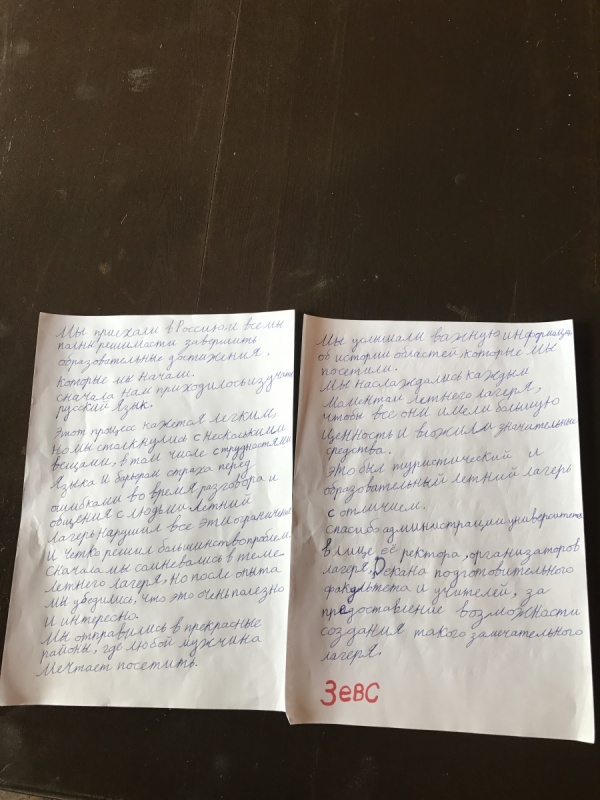 Мы приехали в Россию, и все мы
полны решимости завершить
образовательные достижения,
которые мы начали.
сначала нам приходилось изучать
русский язык.
Этот процесс кажется легким,
но мы столкнулись с несколькими
вещами, в том числе с трудностями
языка и барьером страха перед
ошибками во время разговора и
общения с людьми. Летний
лагерь нарушил все эти ограничения
и четко решил большинство проблем.
Сначала мы сомневались в теме
летнего лагеря, но после опыта
мы убедились, что это очень полезно
и интересно.
Мы отправились в прекрасные
районы, где любой мужчина
мечтает посетить.
Мы услышали важную информацию
об истории областей, которые мы
посетили.
Мы наслаждались каждым
моментом летнего лагеря,
чтобы все они имели большую
ценность и вложили значительные
средства.
это был туристический и
образовательный летний лагерь
с отличием.
спасибо администрации университета
в лице её ректора, организаторов
лагеря, Декана подготовительного
факультета и учителей, за
предоставление возможности
создания такого замечательного
лагеря.
Зевс